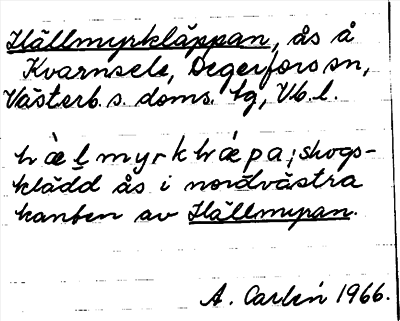 Hällmyrkläppan, ås å
Kvarnsele, Degerfors sn,
Västerb. s. doms. tg, Vb. l.
skogs-
klädd ås i nordvästra
kanten av Hällmyran.
A. Carlén 1966.